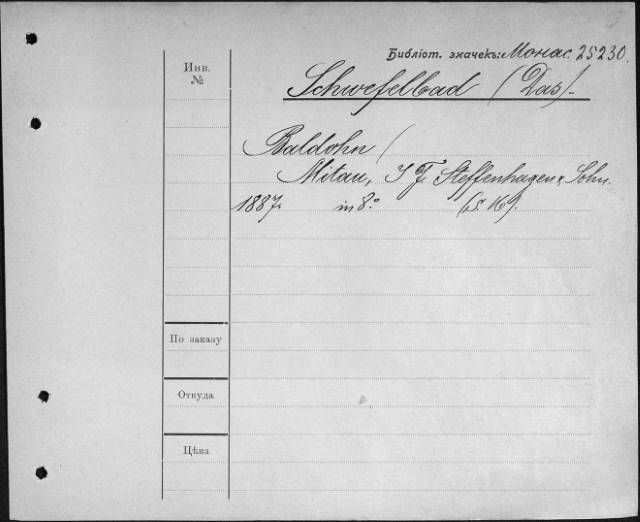 Библіот. значекъ: Монас. 25230.
Инв.
№
Schwefelbad (Das).
Baldohn (
Mitau, J F. Steffenhagen & Sohn.
1887. in 8º (S. 16).
По заказу
Откуда
Цѣна